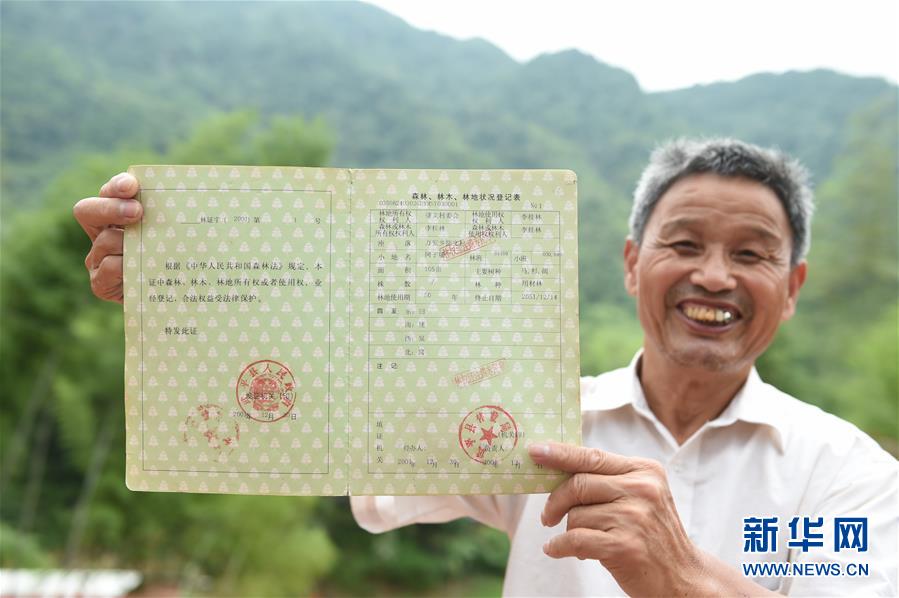 林证字(2001)第 1 号
根据《中华人民共和国森林法》规定，本
证中森林、林木、林地所有权或者使用权，业
经登记，合法权益受法律保护。
特发此证
武平县人民政府
发证机关（印）
2001年12月30日
森林、林木、林地状况登记表
No1
林地所有权权利人 捷文村委会 林地使用权权利人 李桂林
森林或林木所有权权利人 李桂林 森林或林木使用权权利人 李桂林
座落 万安乡捷文村
小地名 林班 小班
面积 105亩 主要树种 马、杉、阔
株数 / 林种 用材林
林地使用期 50 年 终止日期 2051/12/14
四至 东:
南:
西:
北: 窝
注记
填证机关
(机关印)
经办人: 负责人:
2001年 12月 30 2001年 12月
新华网
WWW.NEWS.CN